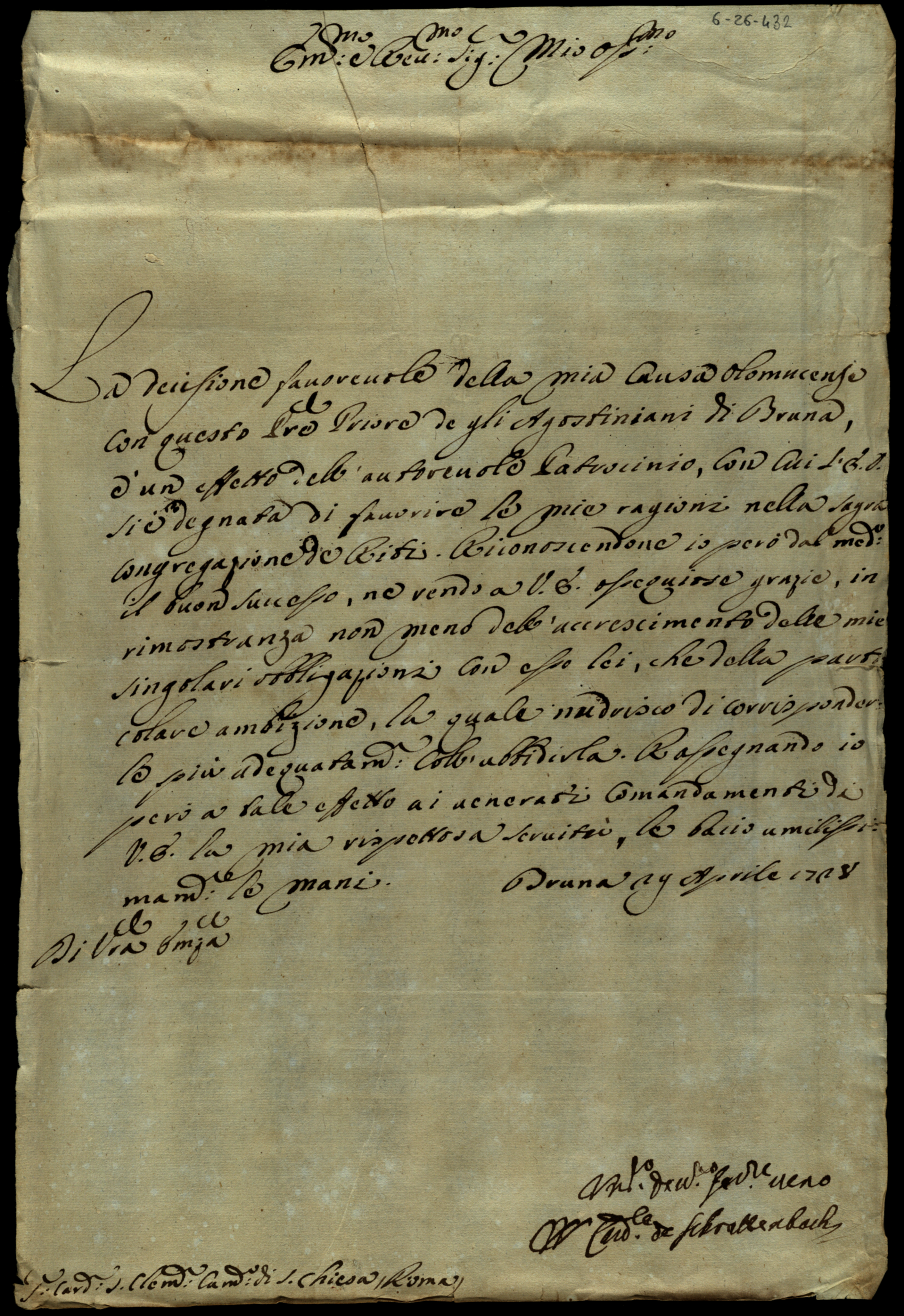 6-26-432
Em:mo e Rev:mo Sig:r Mio Oss:mo
La decisione favorevole della mia Causa Olomucense
con questo Pre Priore de gli Agostiniani di Bruna,
è un effetto dell'autorevole Patrocinio, con cui l'E.V.
si è degnata di favorire le mie ragioni nella sagra
Congregazione de Riti. Riconoscendone io però dal med:o
il buon successo, ne rendo a V.E. ossequiose grazie, in
rimostranza non meno dell'accrescimento delle mie
singolari obbligazioni con esso lei, che della parti
colare ambizione, la quale nudrisco di corrisponder
le più adequatam:e coll'ubbidirla. Rassegnando io
però a tale effetto ai venerati Comandamenti di
V.E. la mia rispettosa servitù, le bacio umilissi:
mam:e le mani. Bruna 29 Aprile 1728
Di Vra Emza
Um:o dev:o serv:re vero
W Card:le de Schrattenbach
S:r Card:l S. Clem:e Cam:o di S. Chiesa, Roma